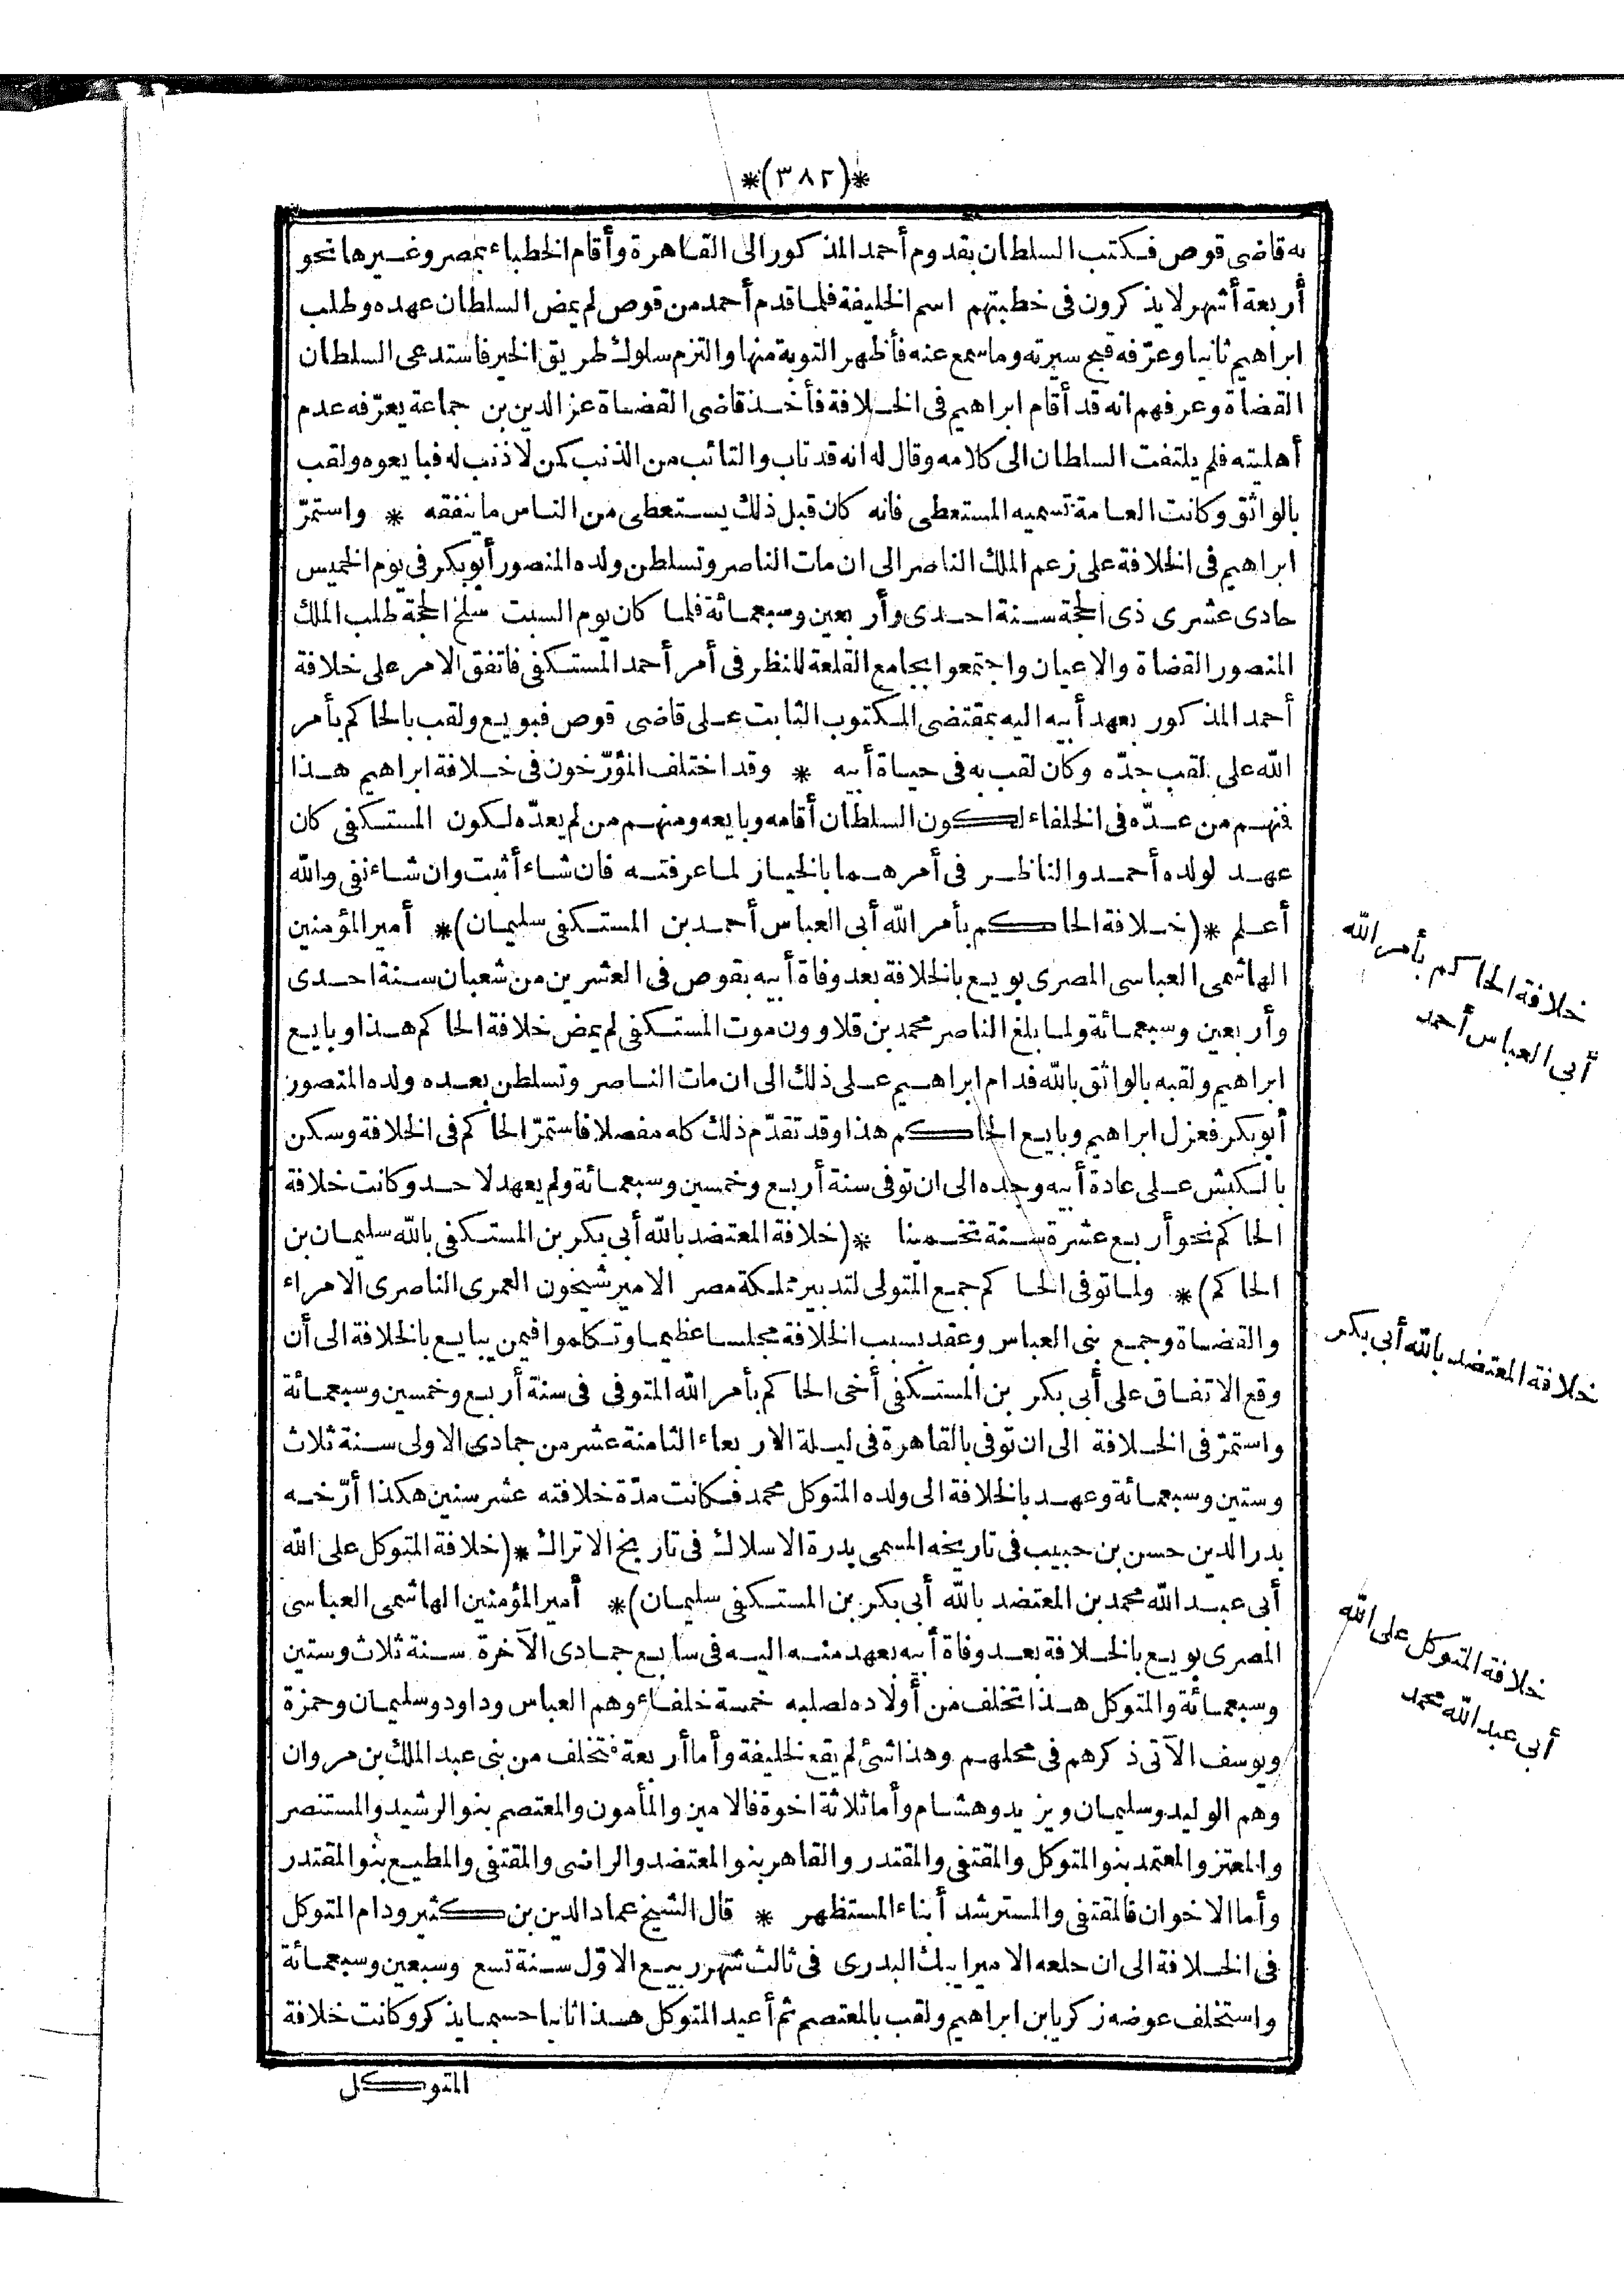 *(٣٨٢)*
به قاضى قوص فكتب السلطان بقدوم أحمد المذكور الى القاهرة وأقام الخطباء بمصر وغيرها نحو
أربعة أشهر لا يذكرون فى خطبتهم اسم الخليفة فلما قدم أحمد من قوص لم يمض السلطان عهده وطلب
ابراهيم ثانيا وعرّفه قبح سيرته وما سمع عنه فأظهر التوبة منها والتزم سلوك طريق الخير فاستدعى السلطان
القضاة وعرفهم انه قد أقام ابراهيم فى الخلافة فأخذ قاضى القضاة عز الدين بن جماعة يعرّفه عدم
أهليته فلم يلتفت السلطان الى كلامه وقال له انه قد تاب والتائب من الذنب كمن لا ذنب له فبايعوه ولقب
بالواثق وكانت العامة تسميه المستعطى فانه كان قبل ذلك يستعطى من الناس ما ينفقه * واستمرّ
ابراهيم فى الخلافة على زعم الملك الناصر الى ان مات الناصر وتسلطن ولده المنصور أبو بكر فى يوم الخميس
حادى عشرى ذى الحجة سنة احدى وأربعين وسبعمائة فلما كان يوم السبت سلخ الحجة طلب الملك
المنصور القضاة والاعيان واجتمعوا بجامع القلعة للنظر فى أمر أحمد المستكفى فاتفق الامر على خلافة
أحمد المذكور بعهد أبيه اليه بمقتضى المكتوب الثابت على قاضى قوص فبويع ولقب بالحاكم بأمر
الله على لقب جدّه وكان لقب به فى حياة أبيه * وقد اختلف المؤرّخون فى خلافة ابراهيم هذا
فنهم من عدّه فى الخلفاء لكون السلطان أقامه وبايعه ومنهم من لم يعدّه لكون المستكفى كان
عهد لولده أحمد والناظر فى أمرهما بالخيار لما عرفته فان شاء أثبت وان شاء نفى والله
أعلم *(خلافة الحاكم بأمر الله أبى العباس أحمد بن المستكفى سليمان)* أمير المؤمنين
الهاشمى العباسى المصرى بويع بالخلافة بعد وفاة أبيه بقوص فى العشرين من شعبان سنة احدى
وأربعين وسبعمائة ولما بلغ الناصر محمد بن قلاوون موت المستكفى لم يمض خلافة الحاكم هذا وبايع
ابراهيم ولقبه بالواثق بالله فدام ابراهيم على ذلك الى ان مات الناصر وتسلطن بعده ولده المنصور
أبو بكر فعزل ابراهيم وبايع الحاكم هذا وقد تقدّم ذلك كله مفصلا فاستمرّ الحاكم فى الخلافة وسكن
بالكبش على عادة أبيه وجده الى ان توفى سنة أربع وخمسين وسبعمائة ولم يعهد لاحد وكانت خلافة
الحاكم نحو أربع عشرة سنة تخمينا *(خلافة المعتضد بالله أبى بكر بن المستكفى بالله سليمان بن
الحاكم)* ولما توفى الحاكم جمع المتولى لتدبير مملكة مصر الامير شيخون العمرى الناصرى الامراء
والقضاة وجمع بنى العباس وعقد بسبب الخلافة مجلسا عظيما وتكلموا فيمن يبايع بالخلافة الى أن
وقع الاتفاق على أبى بكر بن المستكفى أخى الحاكم بأمر الله المتوفى فى سنة أربع وخمسين وسبعمائة
واستمرّ فى الخلافة الى ان توفى بالقاهرة فى ليلة الاربعاء الثامنة عشر من جمادى الاولى سنة ثلاث
وستين وسبعمائة وعهد بالخلافة الى ولده المتوكل محمد فكانت مدّة خلافته عشر سنين هكذا أرّخه
بدر الدين حسن بن حبيب فى تاريخه المسمى بدرة الاسلاك فى تاريخ الاتراك *(خلافة المتوكل على الله
أبى عبد الله محمد بن المعتضد بالله أبى بكر بن المستكفى سليمان)* أمير المؤمنين الهاشمى العباسى
المصرى بويع بالخلافة بعد وفاة أبيه بعهد منه اليه فى سابع جمادى الآخرة سنة ثلاث وستين
وسبعمائة والمتوكل هذا تخلف من أولاده لصلبه خمسة خلفاء وهم العباس وداود وسليمان وحمزة
ويوسف الآتى ذكرهم فى محلهم وهذا شئ لم يقع لخليفة وأما أربعة فتخلف من بنى عبد الملك بن مروان
وهم الوليد وسليمان ويزيد وهشام وأما ثلاثة اخوة فالامين والمأمون والمعتصم بنو الرشيد والمستنصر
والمعتز والمعتمد بنو المتوكل والمقتفى والمقتدر والقاهر بنو المعتضد والراضى والمقتفى والمطيع بنو المقتدر
وأما الاخوان فالمقتفى والمسترشد أبناء المستظهر * قال الشيخ عماد الدين بن كثير ودام المتوكل
فى الخلافة الى ان خلعه الامير ايبك البدرى فى ثالث شهر ربيع الاوّل سنة تسع وسبعين وسبعمائة
واستخلف عوضه زكريا بن ابراهيم ولقب بالمعتصم ثم أعيد المتوكل هذا ثانيا حسبما يذكر وكانت خلافة
المتوكل
خلافة الحاكم بأمر الله
أبى العباس أحمد
خلافة المعتضد بالله أبى بكر
خلافة المتوكل على الله
أبى عبد الله محمد